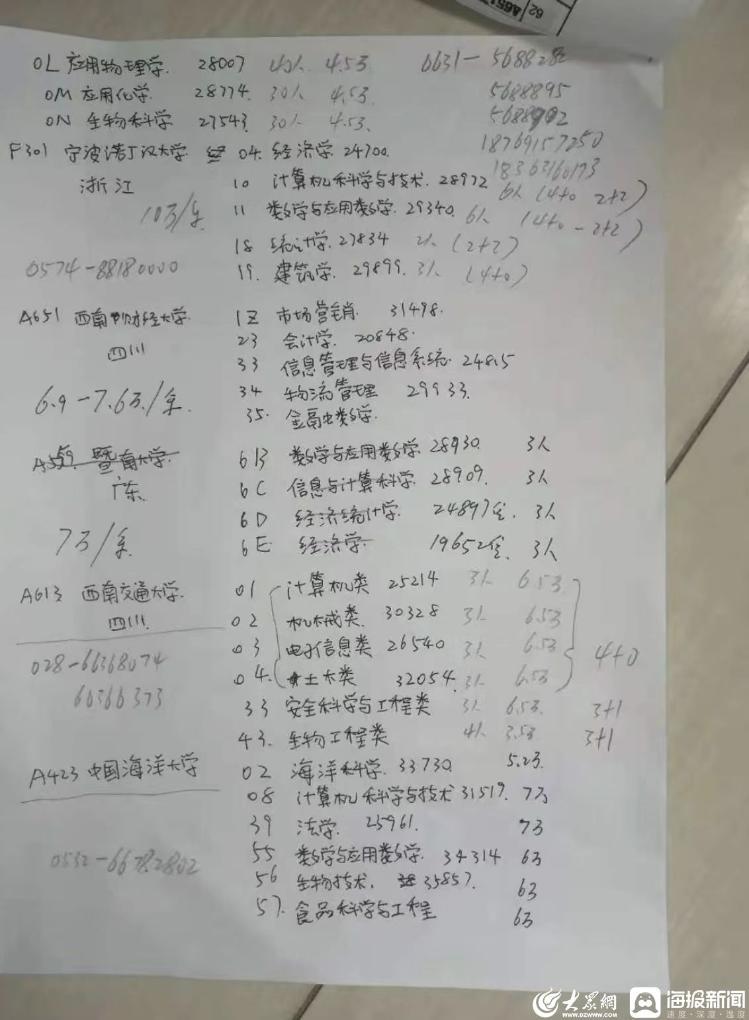 A651
62
0L 应用物理学. 28007 40人 4.5万 0631-5688282
0M 应用化学 28774. 30人 4.5万 5688895
0N 生物科学 27543 30人 4.5万. 5688902
F301 宁波诺丁汉大学 04. 经济学 24700. 18769157250
18363160173
浙江 10 计算机科学与技术. 28972 6人 (4+0 2+2)
10万/年 11 数学与应用数学. 29340. 6人 (4+0 - 2+2)
18 统计学. 27834 2人 (2+2)
0574-88180000 19. 建筑学. 29899. 3人 (4+0)
A651 西南财经大学 12 市场营销. 31498.
四川 23 会计学. 20848.
33 信息管理与信息系统. 24815
6.9-7.6万/年. 34 物流管理 29933.
35. 金融数学.
A559. 暨南大学. 6B 数学与应用数学 28930. 3人
广东. 6C 信息与计算科学. 28909. 3人
6D 经济统计学. 24897位. 3人
7万/年 6E 经济学 19652位. 3人
A613 西南交通大学. 01 计算机类 25214 3人 6.5万
四川. 02 机械类. 30328 3人 6.5万
028-66368074 03 电子信息类 26540 3人 6.5万 4+0
66366373 04. 土木类 32054. 3人 6.5万
33 安全科学与工程类 3人 6.5万. 3+1
43. 生物工程类 4人 3.5万 3+1
A423 中国海洋大学 02 海洋科学. 33730. 5.2万.
08 计算机科学与技术 31519. 7万
39 法学. 25961. 7万
0532-66782802 55 数学与应用数学. 34314 6万
56 生物技术. 35857. 6万
57. 食品科学与工程 6万
大众网
www.dzwww.com
海报新闻
速度·深度·温度